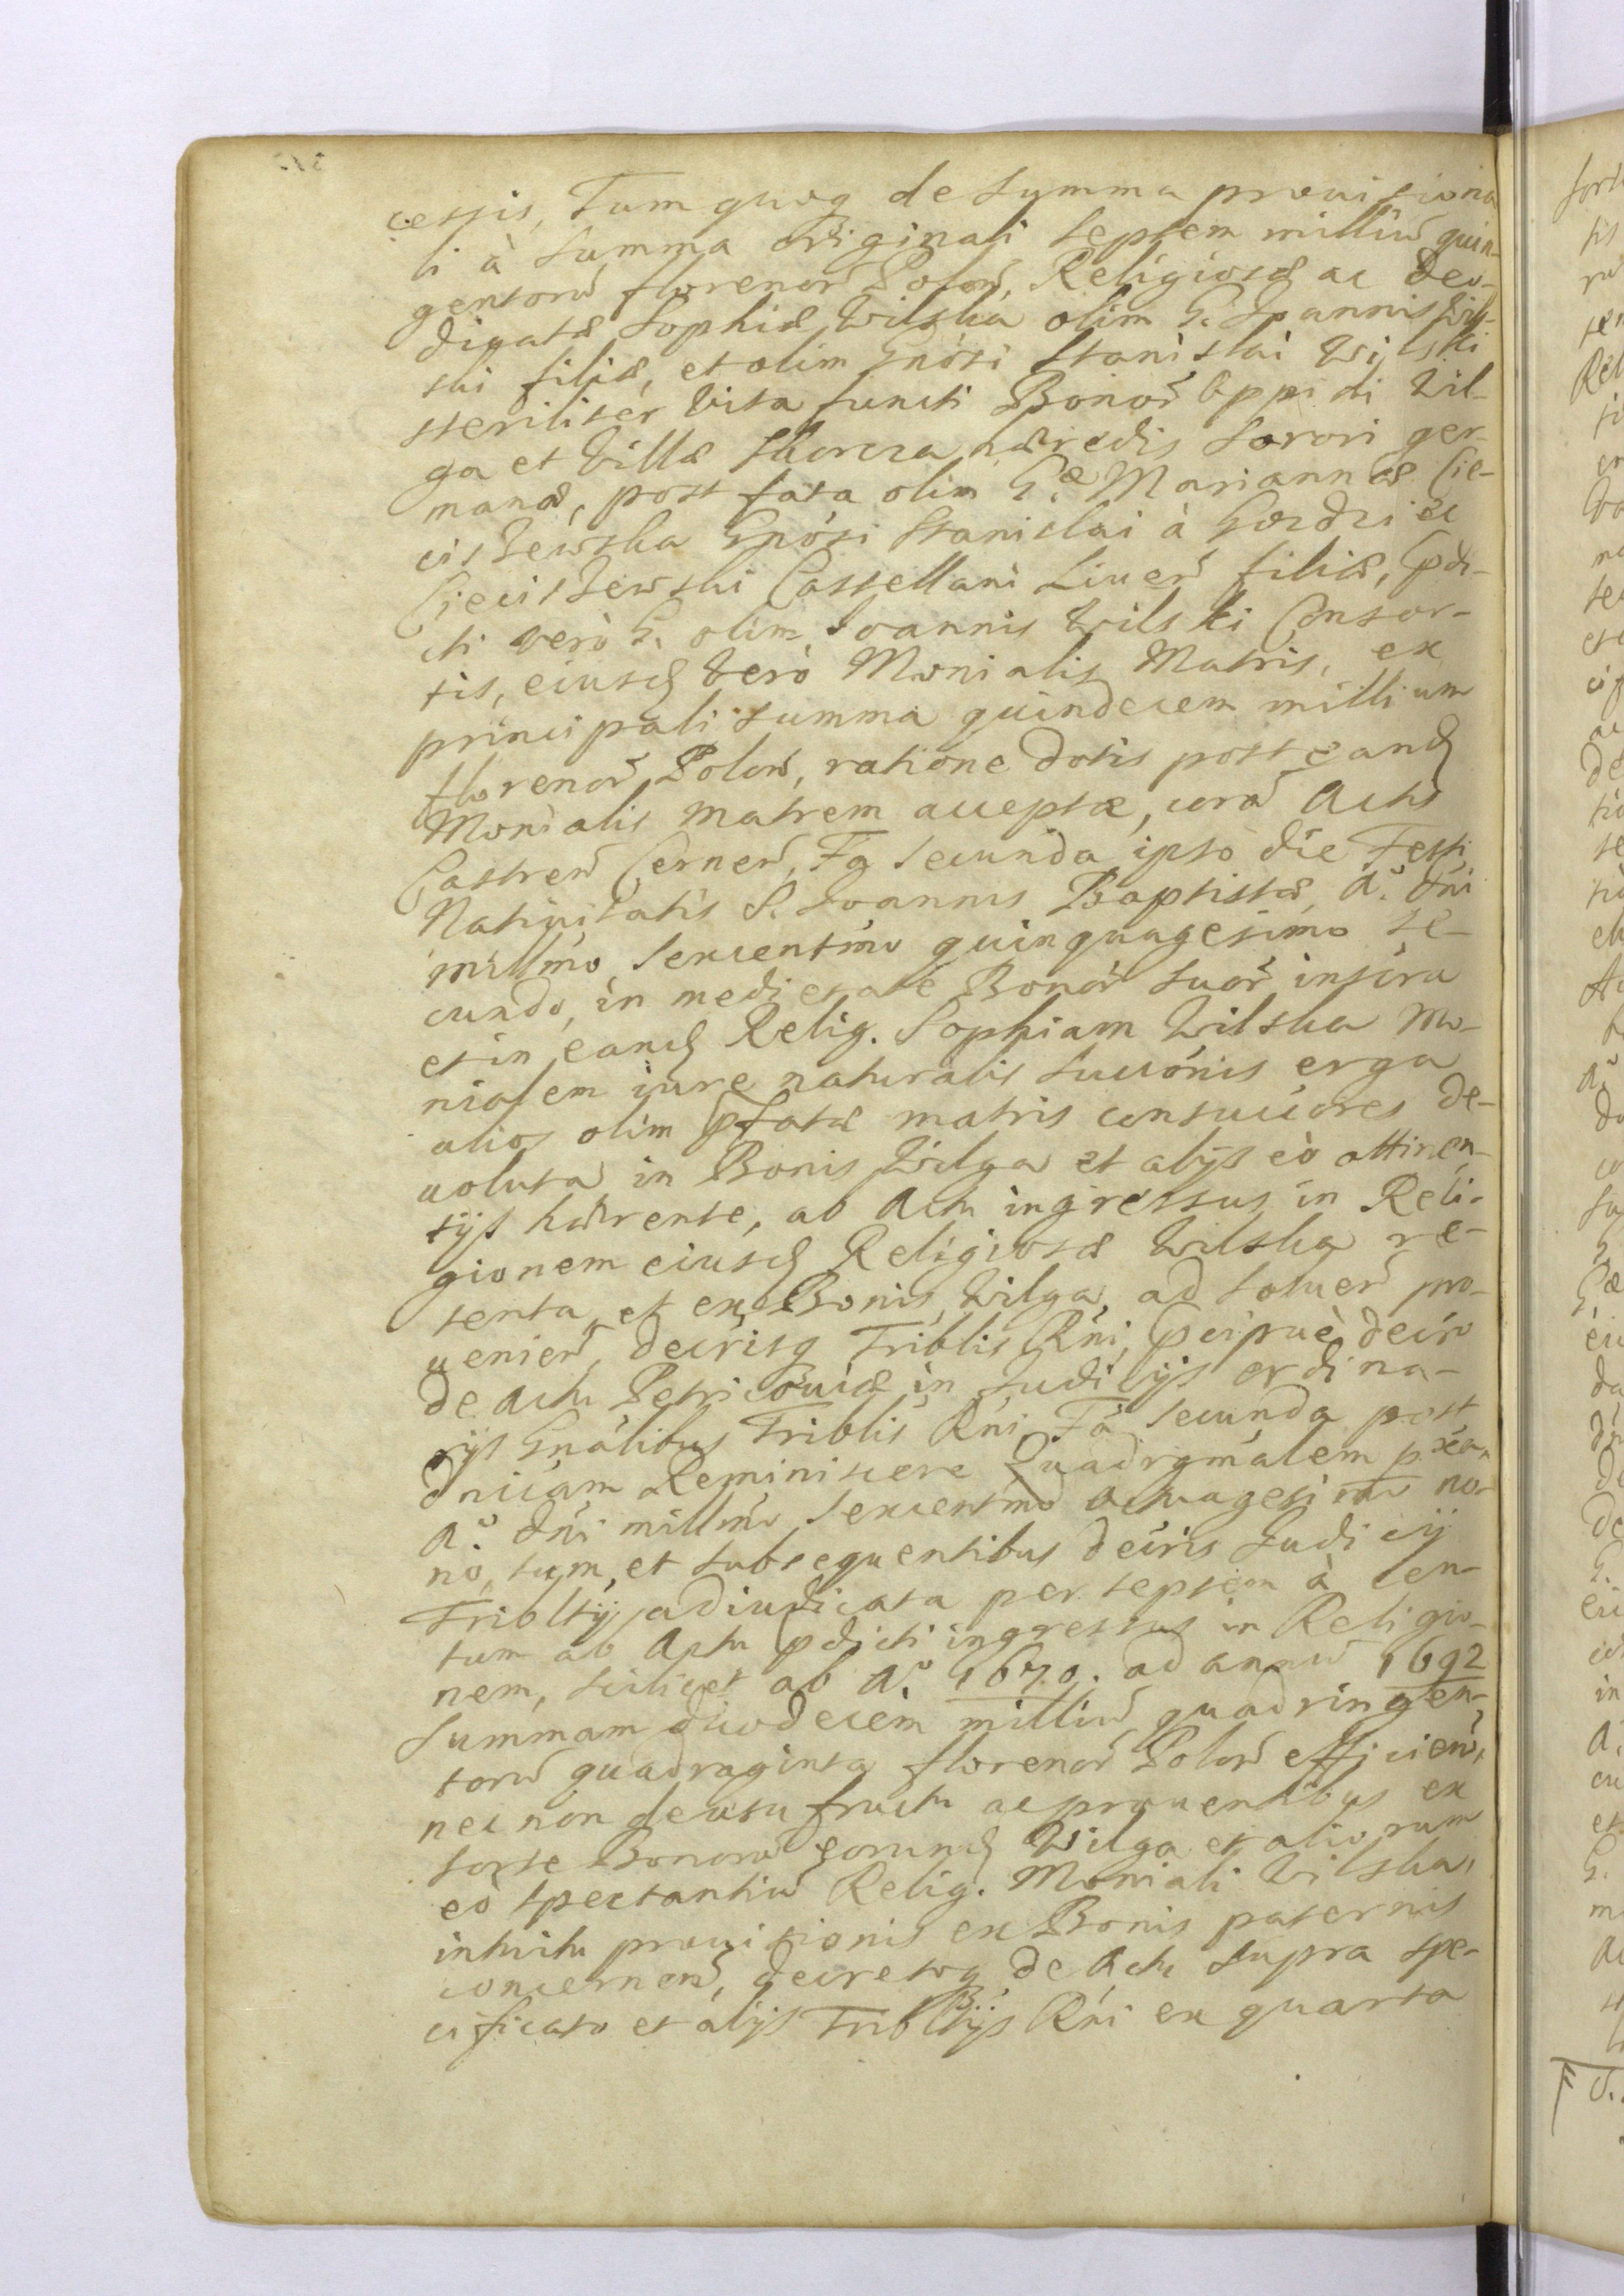 cessis, Tum quoq de Summa prouisiona
li à Summa originali septem milliũ quin-
gentorũ florenor̃ Polon̄, Religiosæ ac Deo-
dicatæ Sophiæ Wilska olim G. Ioannis Wils-
ski filiæ, et olim Gnósi Stanislai Wilski
steriliter vita functi Bonor̃ Oppidi Wil-
ga et Villæ Skurcza hæredis Sorori ger-
manæ, post fata olim G.æ Mariannæ Cie-
ciszewska Gnósi Stanislai à Gozdziec
Cieciszewski Castellani Liuen̄ filiæ, p̃di-
cti verò G. olim Ioannis Wilski Consor-
tis, eiusd̃ verò Monialis Matris, ex
principali Summa quindecem millium
florenor̃ Polon̄, ratione dotis post eand̃
Monialis matrem acceptæ, corã Actis
Castren̄ Cernen̄, Fa secunda ipso die Festi
Natiuitatis S. Ioannis Baptistæ, A.o Dńi
millm̃o Sexcentm̃o quinquagesimo se-
cundo, in medietate Bonor̃ suor̃ inscra
et in eand̃ Relig. Sophiam Wilska Mo-
nialem iure naturalis Succónis erga
alios olim p̃fatæ matris consuccores de-
uoluta in Bonis Wilga et alijs eò attinen-
tijs hærente, ab Actu ingressus in Reli-
gionem eiusd̃ Religiosæ Wilska re-
tenta, et ex Bonis Wilga, ad soluen̄ pro-
uenien̄, decrisq Triblis Rńi, p̃cipuè decro
de Actu Petricouiæ in Iudicijs ordina-
rijs Gnálibus Triblis Rńi Fá secunda post
Dnicam Reminiscere Quadrgmalem pxéa,
A.o Dńi millm̃o Sexcentm̃o octuagesimo no-
no, tum, et subsequentibus decris Iudicij
Tribltij adiudicata per septem à Cen-
tum ab Actu p̃dicti ingressus in Religio-
nem, scilicet ab A.o 1670. ad annũ 1692
Summam duodecem milliũ quadringen-
torũ quadraginta florenor̃ Polon̄ efficien̄,
nec non de usu fructu ac prouentibus ex
sorte Bonorũ eorund̃ Wilga et aliorum
eò spectantiũ Relig. Moniali Wilska,
intuitu prouisionis ex Bonis paternis
concernen̄, decretoq de Actu supra spe-
cificato et alijs Tribltijs Rńi ex quarta